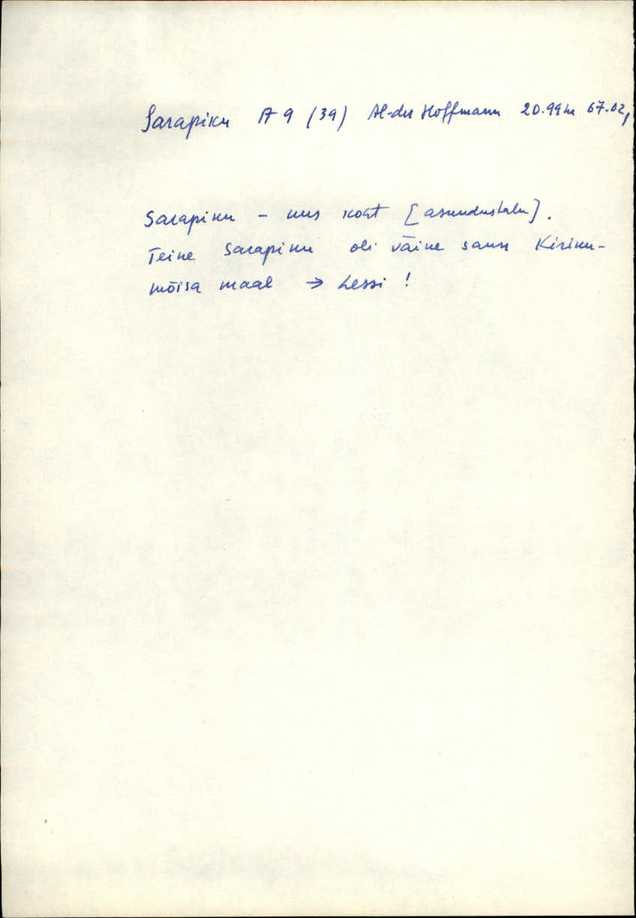 Sarapiku A 9 (39) Al-der Hoffmann 20.99 ha 67.02,
Sarapiku – uus koht [asundustalu].
Teine Sarapiku oli väine saun Kiriku-
mõisa maal → Lessi !